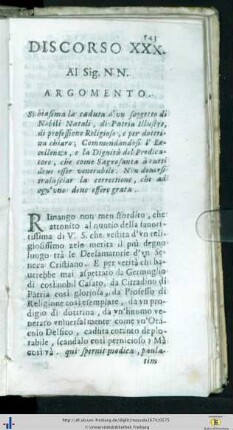 543
DISCORSO XXX.
Al Sig. N N.
ARGOMENTO.
Si biasima la caduta d'un soggetto di
Nobili Natali, di Patria illustre,
di professione Religioso, e per dottri-
na chiaro; Commendandosi l' Ec-
cellenza, e la Dignità del Predica-
tore, che come Sagrosanta à tutti
deve esser venerabile. Non doversi
tralasciar la correttione, che ad
ogn'uno deve essere grata.
RImango non men stordito, che
attonito al nuntio della
di V. S. che vestita d'un reli-
giosissimo zelo merita il più degno
luogo trà le Declamatorie d'un Se-
neca Cristiano. E per verità chi
mai aspettato da Germoglio
di così nobil Casato, da Cittadino di
Patria così gloriosa, da Professo di
Religione così esemplare, da un pro-
digio di dottrina, da un'huomo ve-
nerato universalmente come un'Ora-
colo Delfico, caduta cotanto deplo-
rabile, scandalo così pernicioso? Mà
così và. qui spernit modica, paula-
tim
http://dl.ub.uni-freiburg.de/diglit/
© Universitätsbibliothek Freiburg